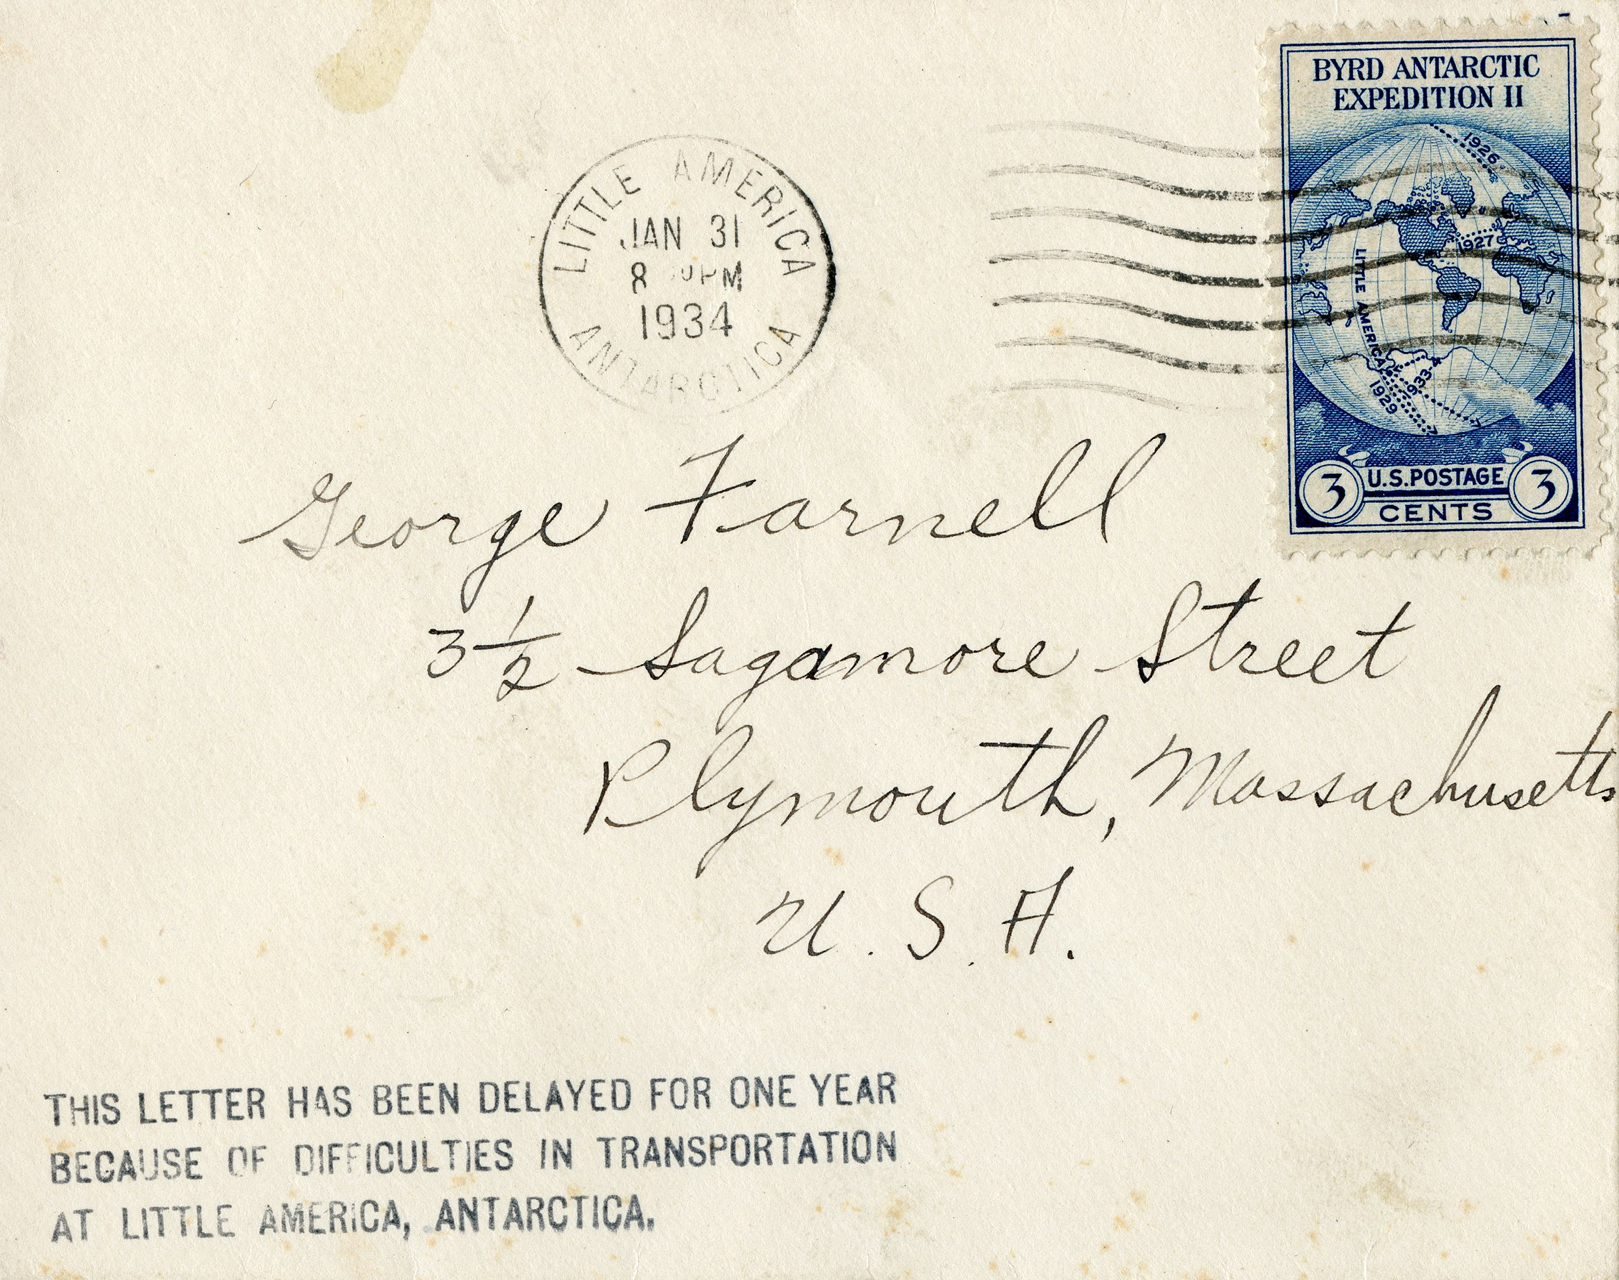 BYRD ANTARCTIC
EXPEDITION II
1926
1927
LITTLE AMERICA
1933
1929
U.S. POSTAGE
3 3
CENTS
LITTLE AMERICA
JAN 31
8 PM
1934
ANTARCTICA
George Farnell
3½ Sagamore Street
Plymouth, Massachusetts
U. S. A.
THIS LETTER HAS BEEN DELAYED FOR ONE YEAR
BECAUSE OF DIFFICULTIES IN TRANSPORTATION
AT LITTLE AMERICA, ANTARCTICA.